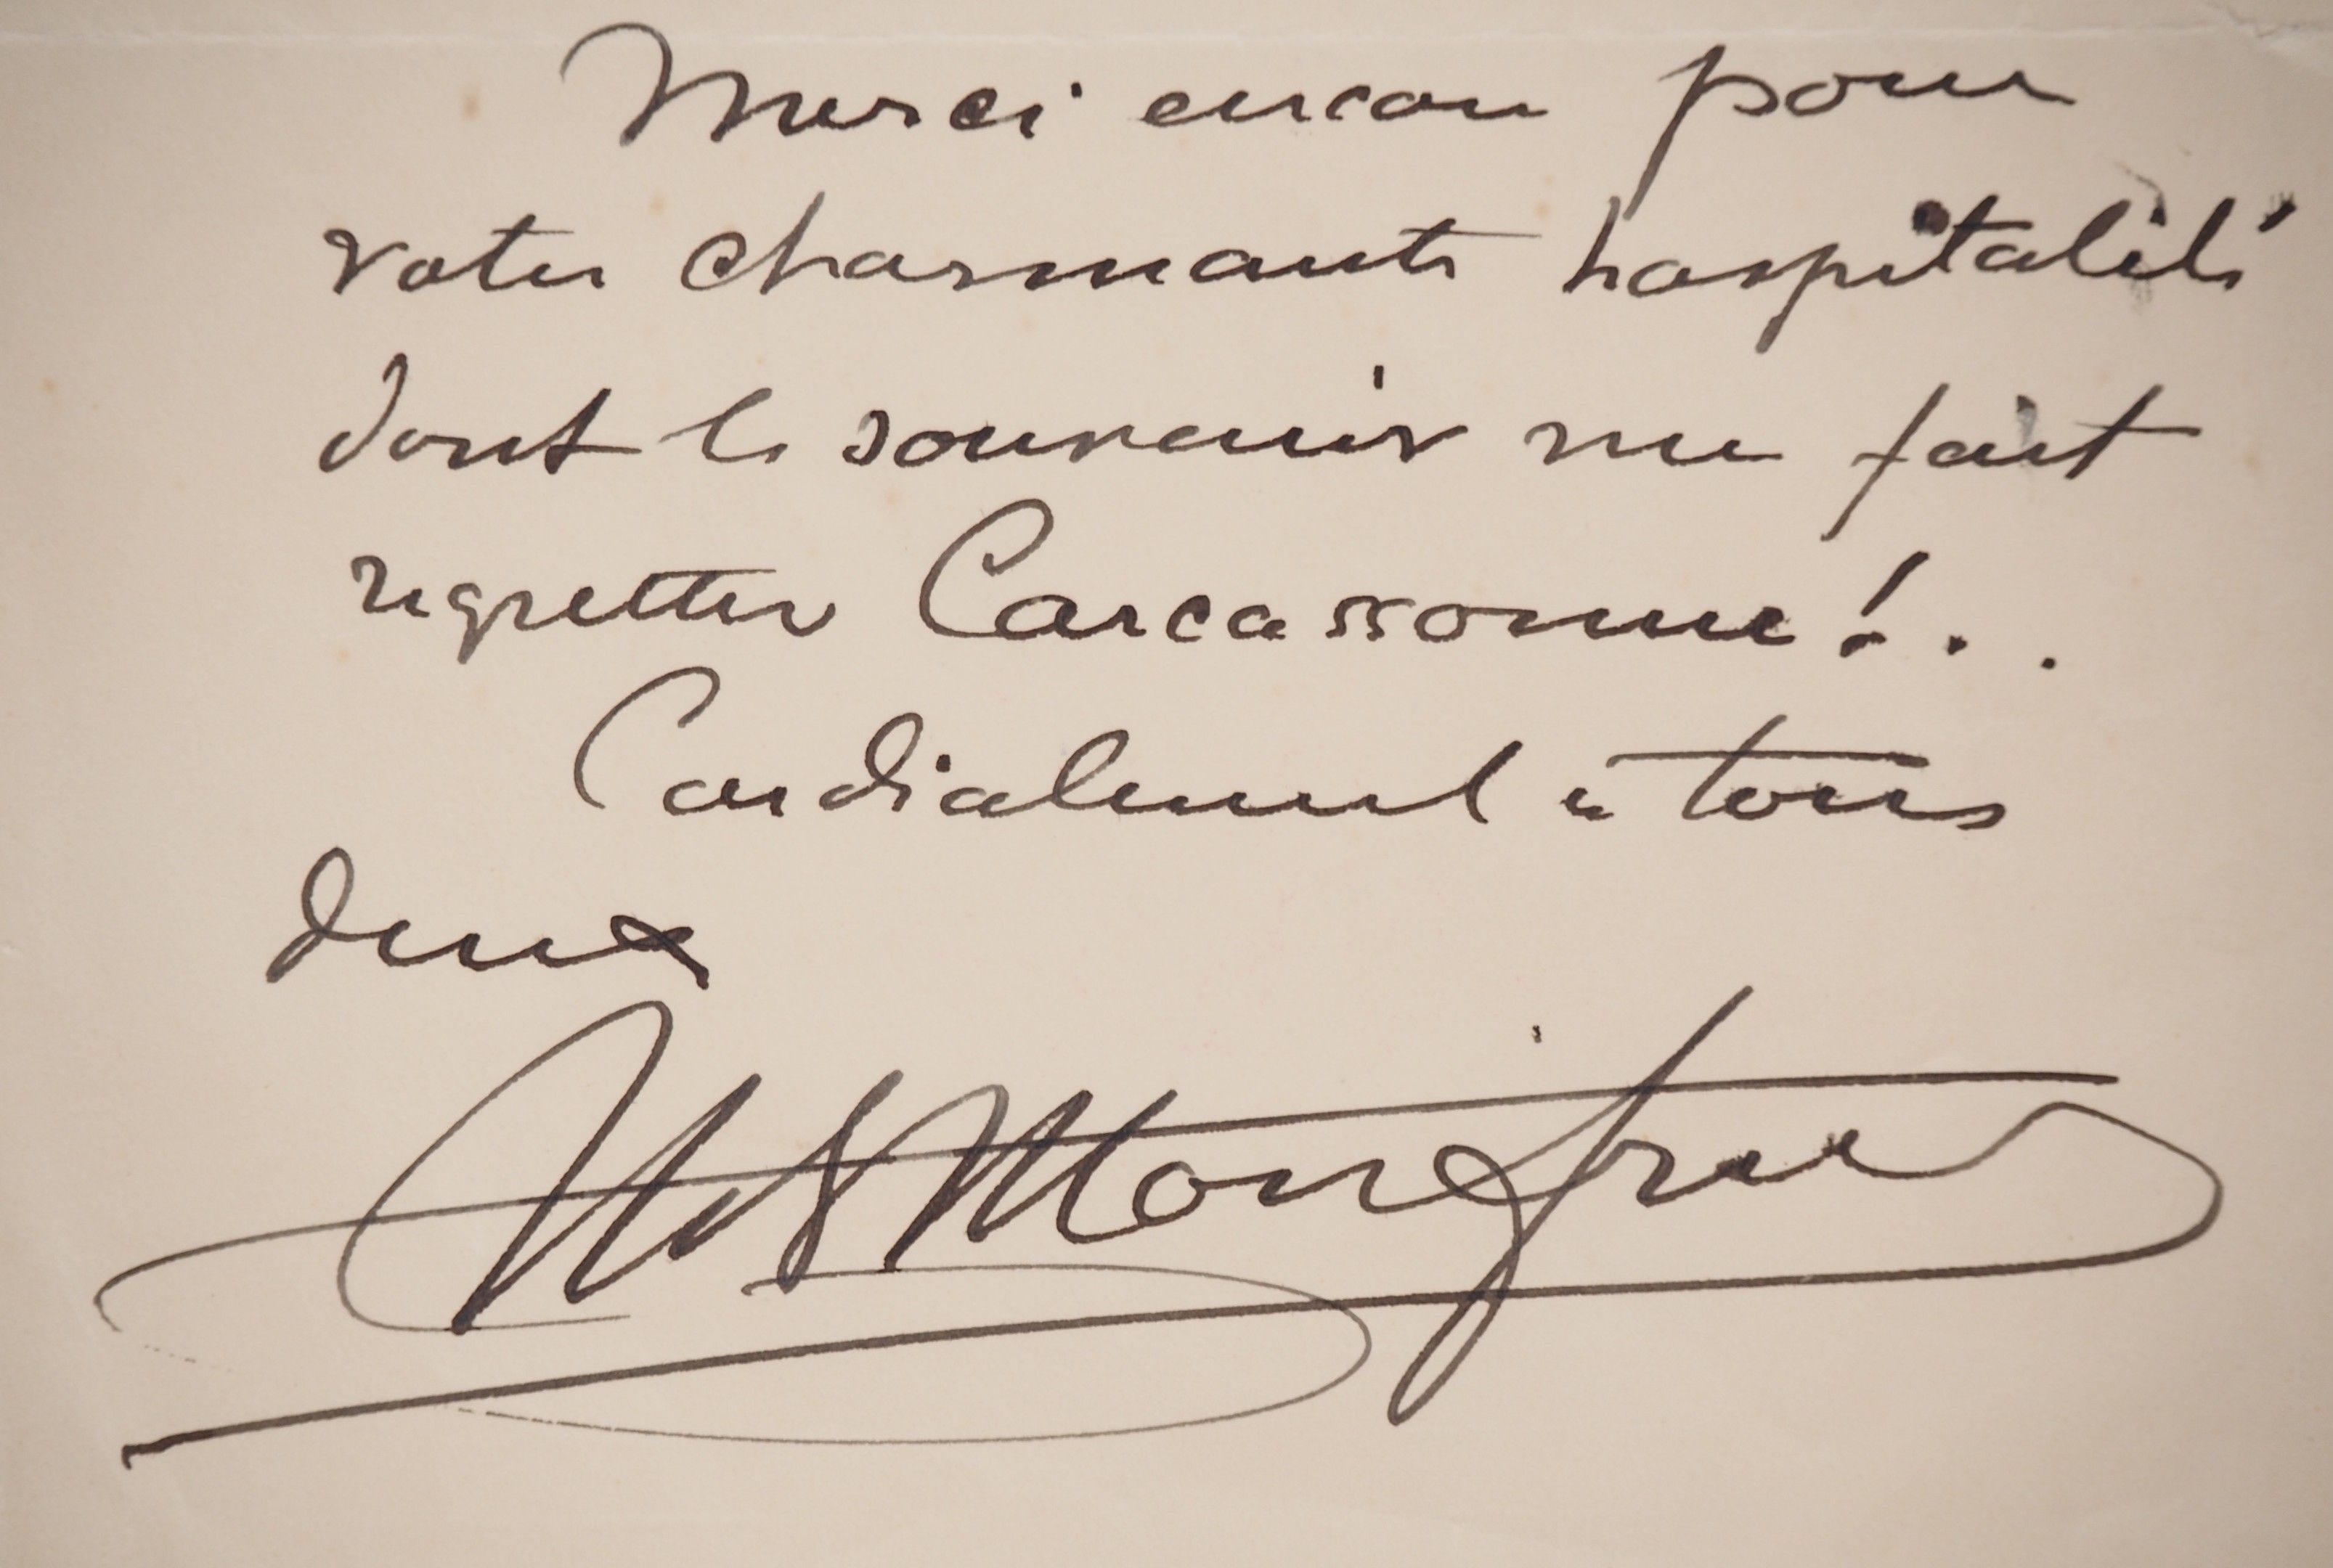 Merci encore pour
votre charmante hospitalité
dont le souvenir me fait
regretter Carcassonne !..
Cordialement à tous
deux
H de Monfreid